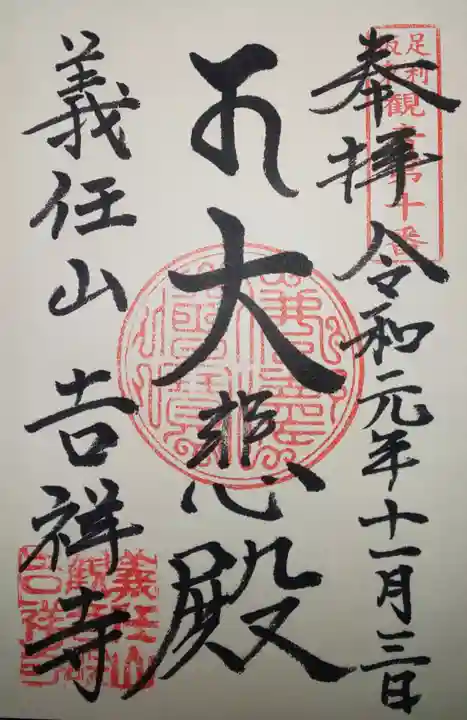 奉拝 令和元年十一月三日
大悲殿
義任山 𠮷祥寺
足利
観音第十番
義任山
吉祥寺